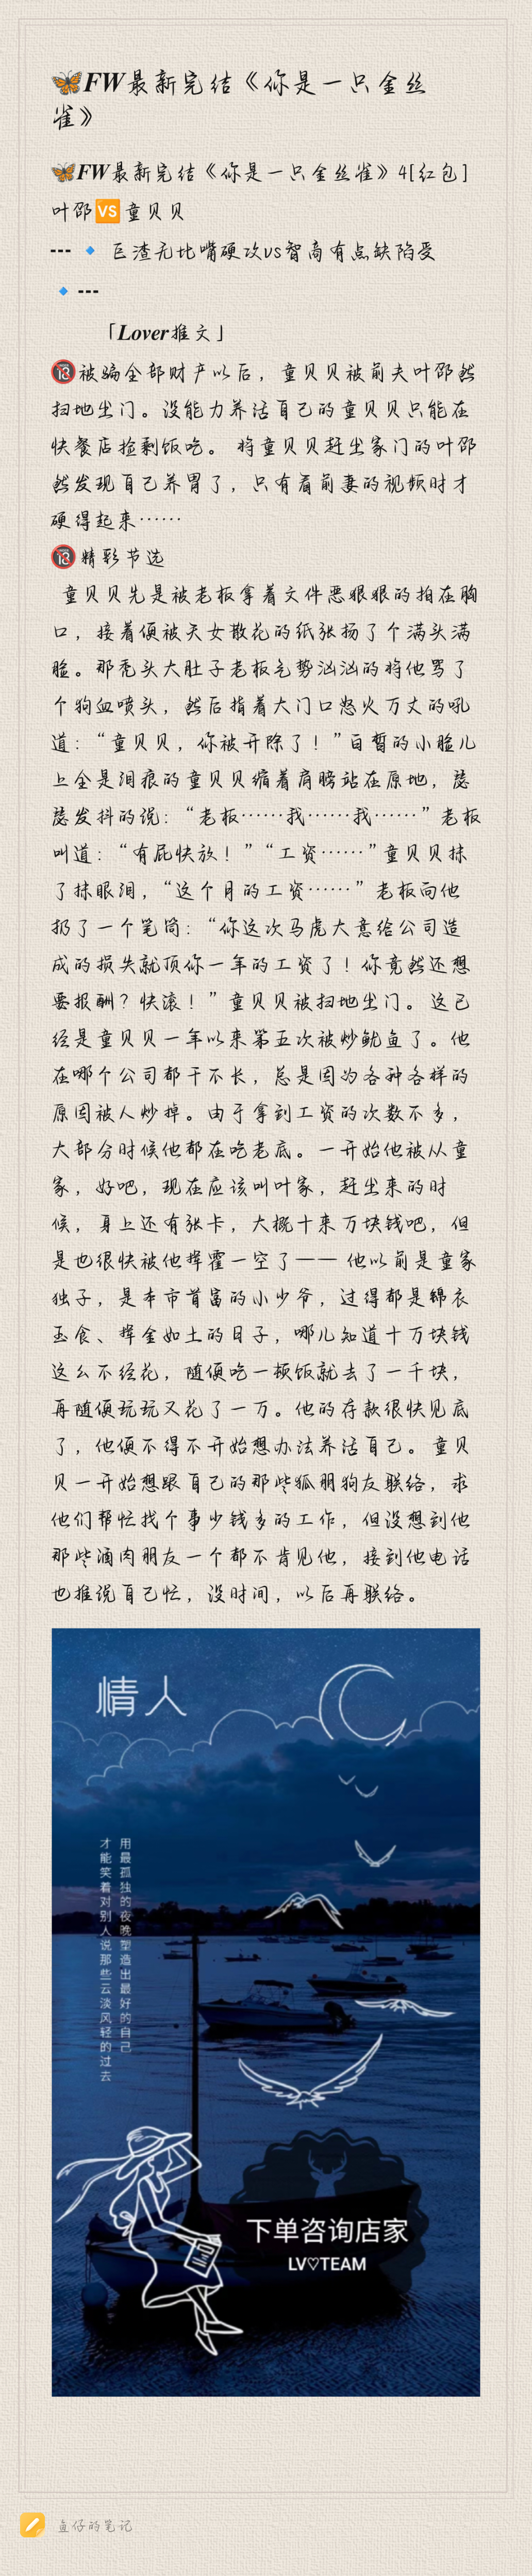 🦋FW最新完结《你是一只金丝
雀》
🦋FW最新完结《你是一只金丝雀》4[红包]
叶邵🆚童贝贝
---🔹 巨渣无比嘴硬攻vs智商有点缺陷受
🔹---
「Lover推文」
🔞被骗全部财产以后，童贝贝被前夫叶邵然
扫地出门。没能力养活自己的童贝贝只能在
快餐店捡剩饭吃。 将童贝贝赶出家门的叶邵
然发现自己养胃了，只有看前妻的视频时才
硬得起来……
🔞精彩节选
童贝贝先是被老板拿着文件恶狠狠的拍在胸
口，接着便被天女散花的纸张扬了个满头满
脸。那秃头大肚子老板气势汹汹的将他骂了
个狗血喷头，然后指着大门口怒火万丈的吼
道：“童贝贝，你被开除了！”白皙的小脸儿
上全是泪痕的童贝贝缩着肩膀站在原地，瑟
瑟发抖的说：“老板……我……我……”老板
叫道：“有屁快放！”“工资……”童贝贝抹
了抹眼泪，“这个月的工资……”老板向他
扔了一个笔筒：“你这次马虎大意给公司造
成的损失就顶你一年的工资了！你竟然还想
要报酬？快滚！”童贝贝被扫地出门。 这已
经是童贝贝一年以来第五次被炒鱿鱼了。他
在哪个公司都干不长，总是因为各种各样的
原因被人炒掉。由于拿到工资的次数不多，
大部分时候他都在吃老底。一开始他被从童
家，好吧，现在应该叫叶家，赶出来的时
候，身上还有张卡，大概十来万块钱吧，但
是也很快被他挥霍一空了—— 他以前是童家
独子，是本市首富的小少爷，过得都是锦衣
玉食、挥金如土的日子，哪儿知道十万块钱
这么不经花，随便吃一顿饭就去了一千块，
再随便玩玩又花了一万。他的存款很快见底
了，他便不得不开始想办法养活自己。 童贝
贝一开始想跟自己的那些狐朋狗友联络，求
他们帮忙找个事少钱多的工作，但没想到他
那些酒肉朋友一个都不肯见他，接到他电话
也推说自己忙，没时间，以后再联络。
情人
用最孤独的夜晚塑造出最好的自己
才能笑着对别人说那些云淡风轻的过去
下单咨询店家
LV♡TEAM
鱼仔的笔记